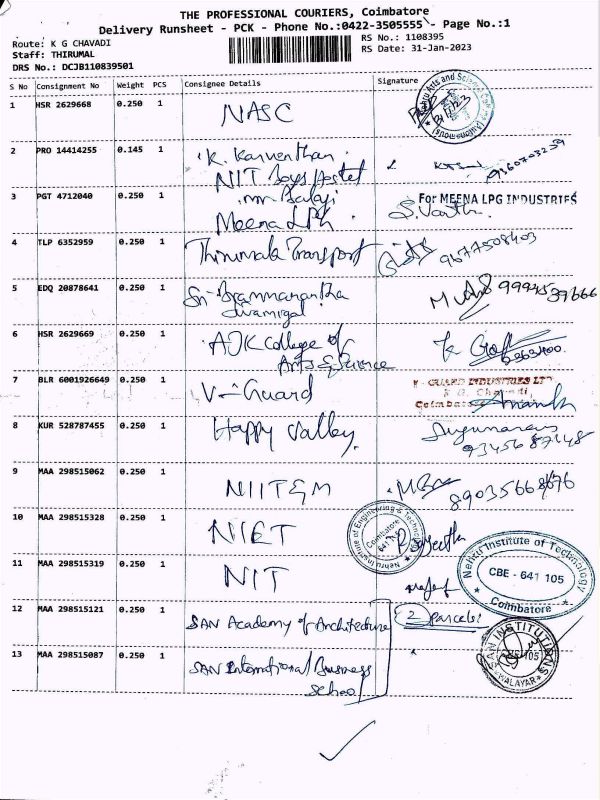 THE PROFESSIONAL COURIERS, Coimbatore
Delivery Runsheet - PCK - Phone No.:0422-3505555 - Page No.:1
Route: K G CHAVADI
Staff: THIRUMAL
DRS No.: DCJB110839501
RS No.: 1108395
RS Date: 31-Jan-2023
S No Consignment No Weight PCS Consignee Details Signature
1 HSR 2629668 0.250 1 NASC
2 PRO 14414255 0.145 1 K. Kaviventhan
NIT Boys Hostel
3 PGT 4712040 0.250 1 Mr Balaji
Meena LPG For MEENA LPG INDUSTRIES
4 TLP 6352959 0.250 1 Thirumala Transport 9677508403
5 EDQ 20878641 0.250 1 Sri Brammanantha
Swamigal
6 HSR 2629669 0.250 1 AJK College of
Arts & Science
7 BLR 6001926649 0.250 1 V-Guard V - GUARD INDUSTRIES LTD
K G Chavadi,
Coimbatore Anandh
8 KUR 528787455 0.250 1 Happy Valley
9 MAA 298515062 0.250 1 NIITEM
10 MAA 298515328 0.250 1 NIET
Nehru Institute of Engineering & Technology
Coimbatore
641 105
11 MAA 298515319 0.250 1 NIT
Nehru Institute of Technology
CBE - 641 105
Coimbatore
12 MAA 298515121 0.250 1 SAN Academy of Architecture 2 parcels
13 MAA 298515087 0.250 1 SAN International Business
School
SAN INSTITUTIONS
WALAYAR
Nehru Arts and Science College
(Autonomous)